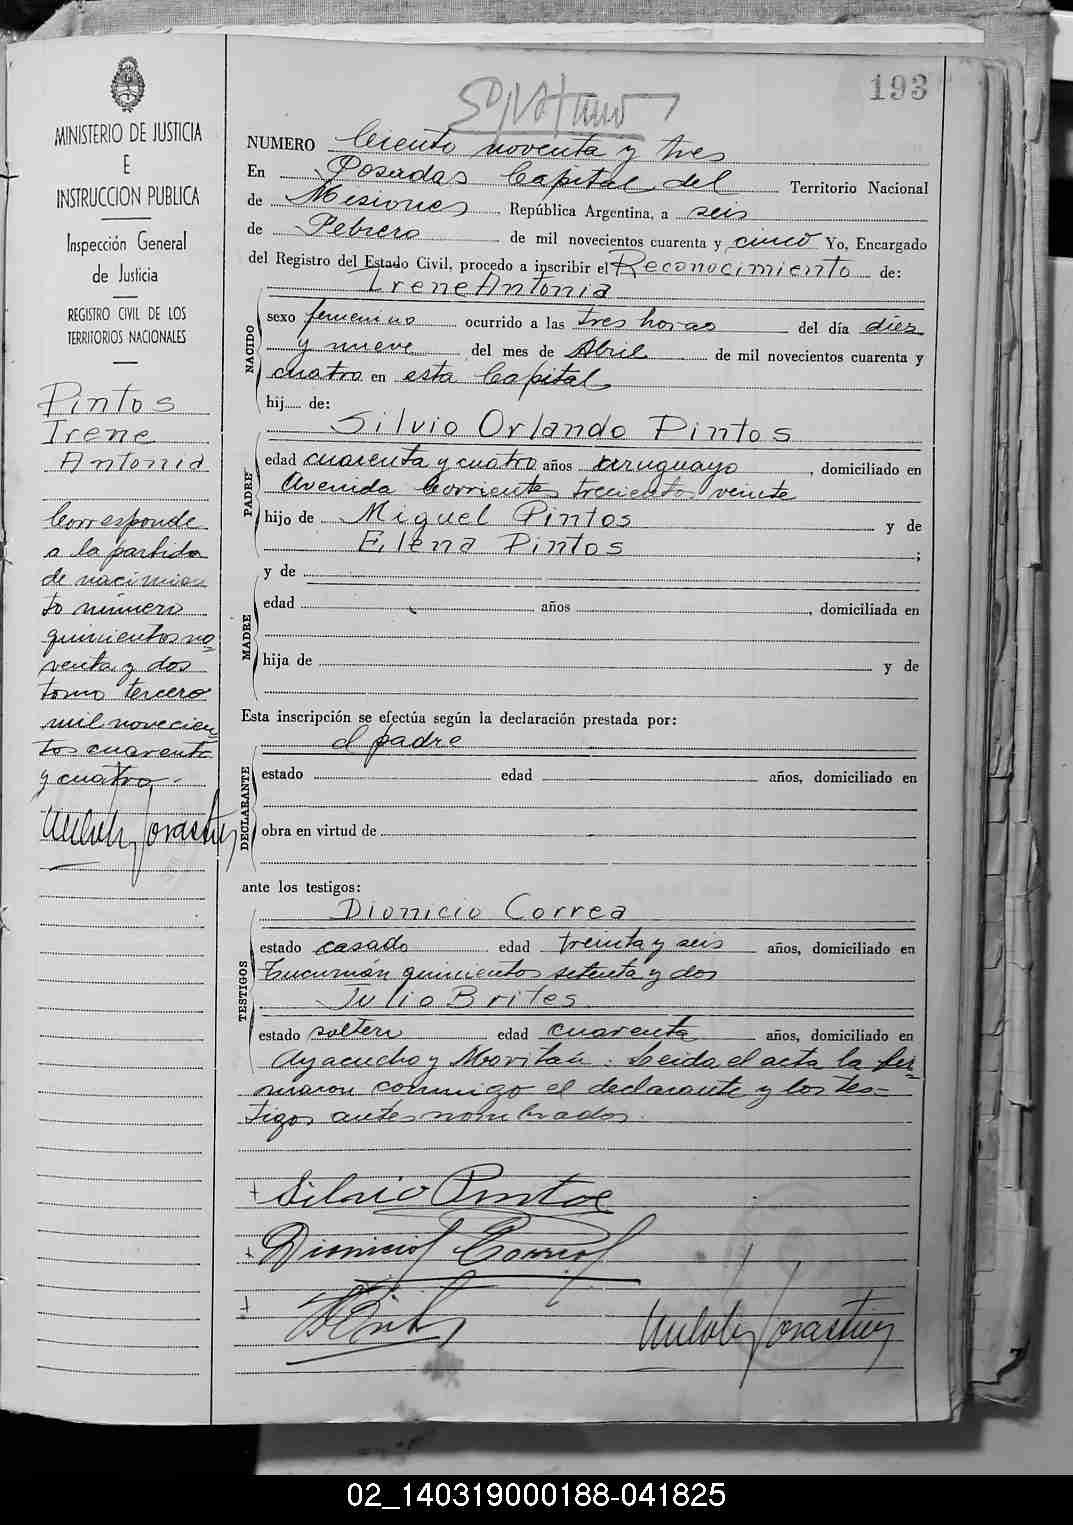 193
MINISTERIO DE JUSTICIA
E
INSTRUCCION PUBLICA
Inspección General
de Justicia
REGISTRO CIVIL DE LOS
TERRITORIOS NACIONALES
Pintos
Irene
Antonia
Corresponde
a la partida
de nacimien
to número
quinientos no=
venta y dos
tomo tercero
mil novecien
tos cuarenta
y cuatro.-
NUMERO Ciento noventa y tres
En Posadas Capital del Territorio Nacional
de Misiones República Argentina, a seis
de Febrero de mil novecientos cuarenta y cinco Yo, Encargado
del Registro del Estado Civil, procedo a inscribir el Reconocimiento de:
Irene Antonia
NACIDO
sexo femenino ocurrido a las tres horas del día diez
y nueve del mes de Abril de mil novecientos cuarenta y
cuatro en esta Capital
hij de:
Silvio Orlando Pintos
PADRE
edad cuarenta y cuatro años uruguayo, domiciliado en
Avenida Corrientes trecientos veinte
hijo de Miguel Pintos y de
Elena Pintos ;
y de
MADRE
edad años , domiciliada en
hija de y de
Esta inscripción se efectúa según la declaración prestada por:
el padre
DECLARANTE
estado edad años, domiciliado en
obra en virtud de
ante los testigos:
Dionicio Correa
TESTIGOS
estado casado edad treinta y seis años, domiciliado en
Tucumán quinientos setenta y dos
Julio Brites
estado soltero edad cuarenta años, domiciliado en
Ayacucho y Moritán. Leida el acta la fir=
maron conmigo el declarante y los tes=
tigos antes nombrados.
Silvio Pintos
Dionicio Correa
02_140319000188-041825